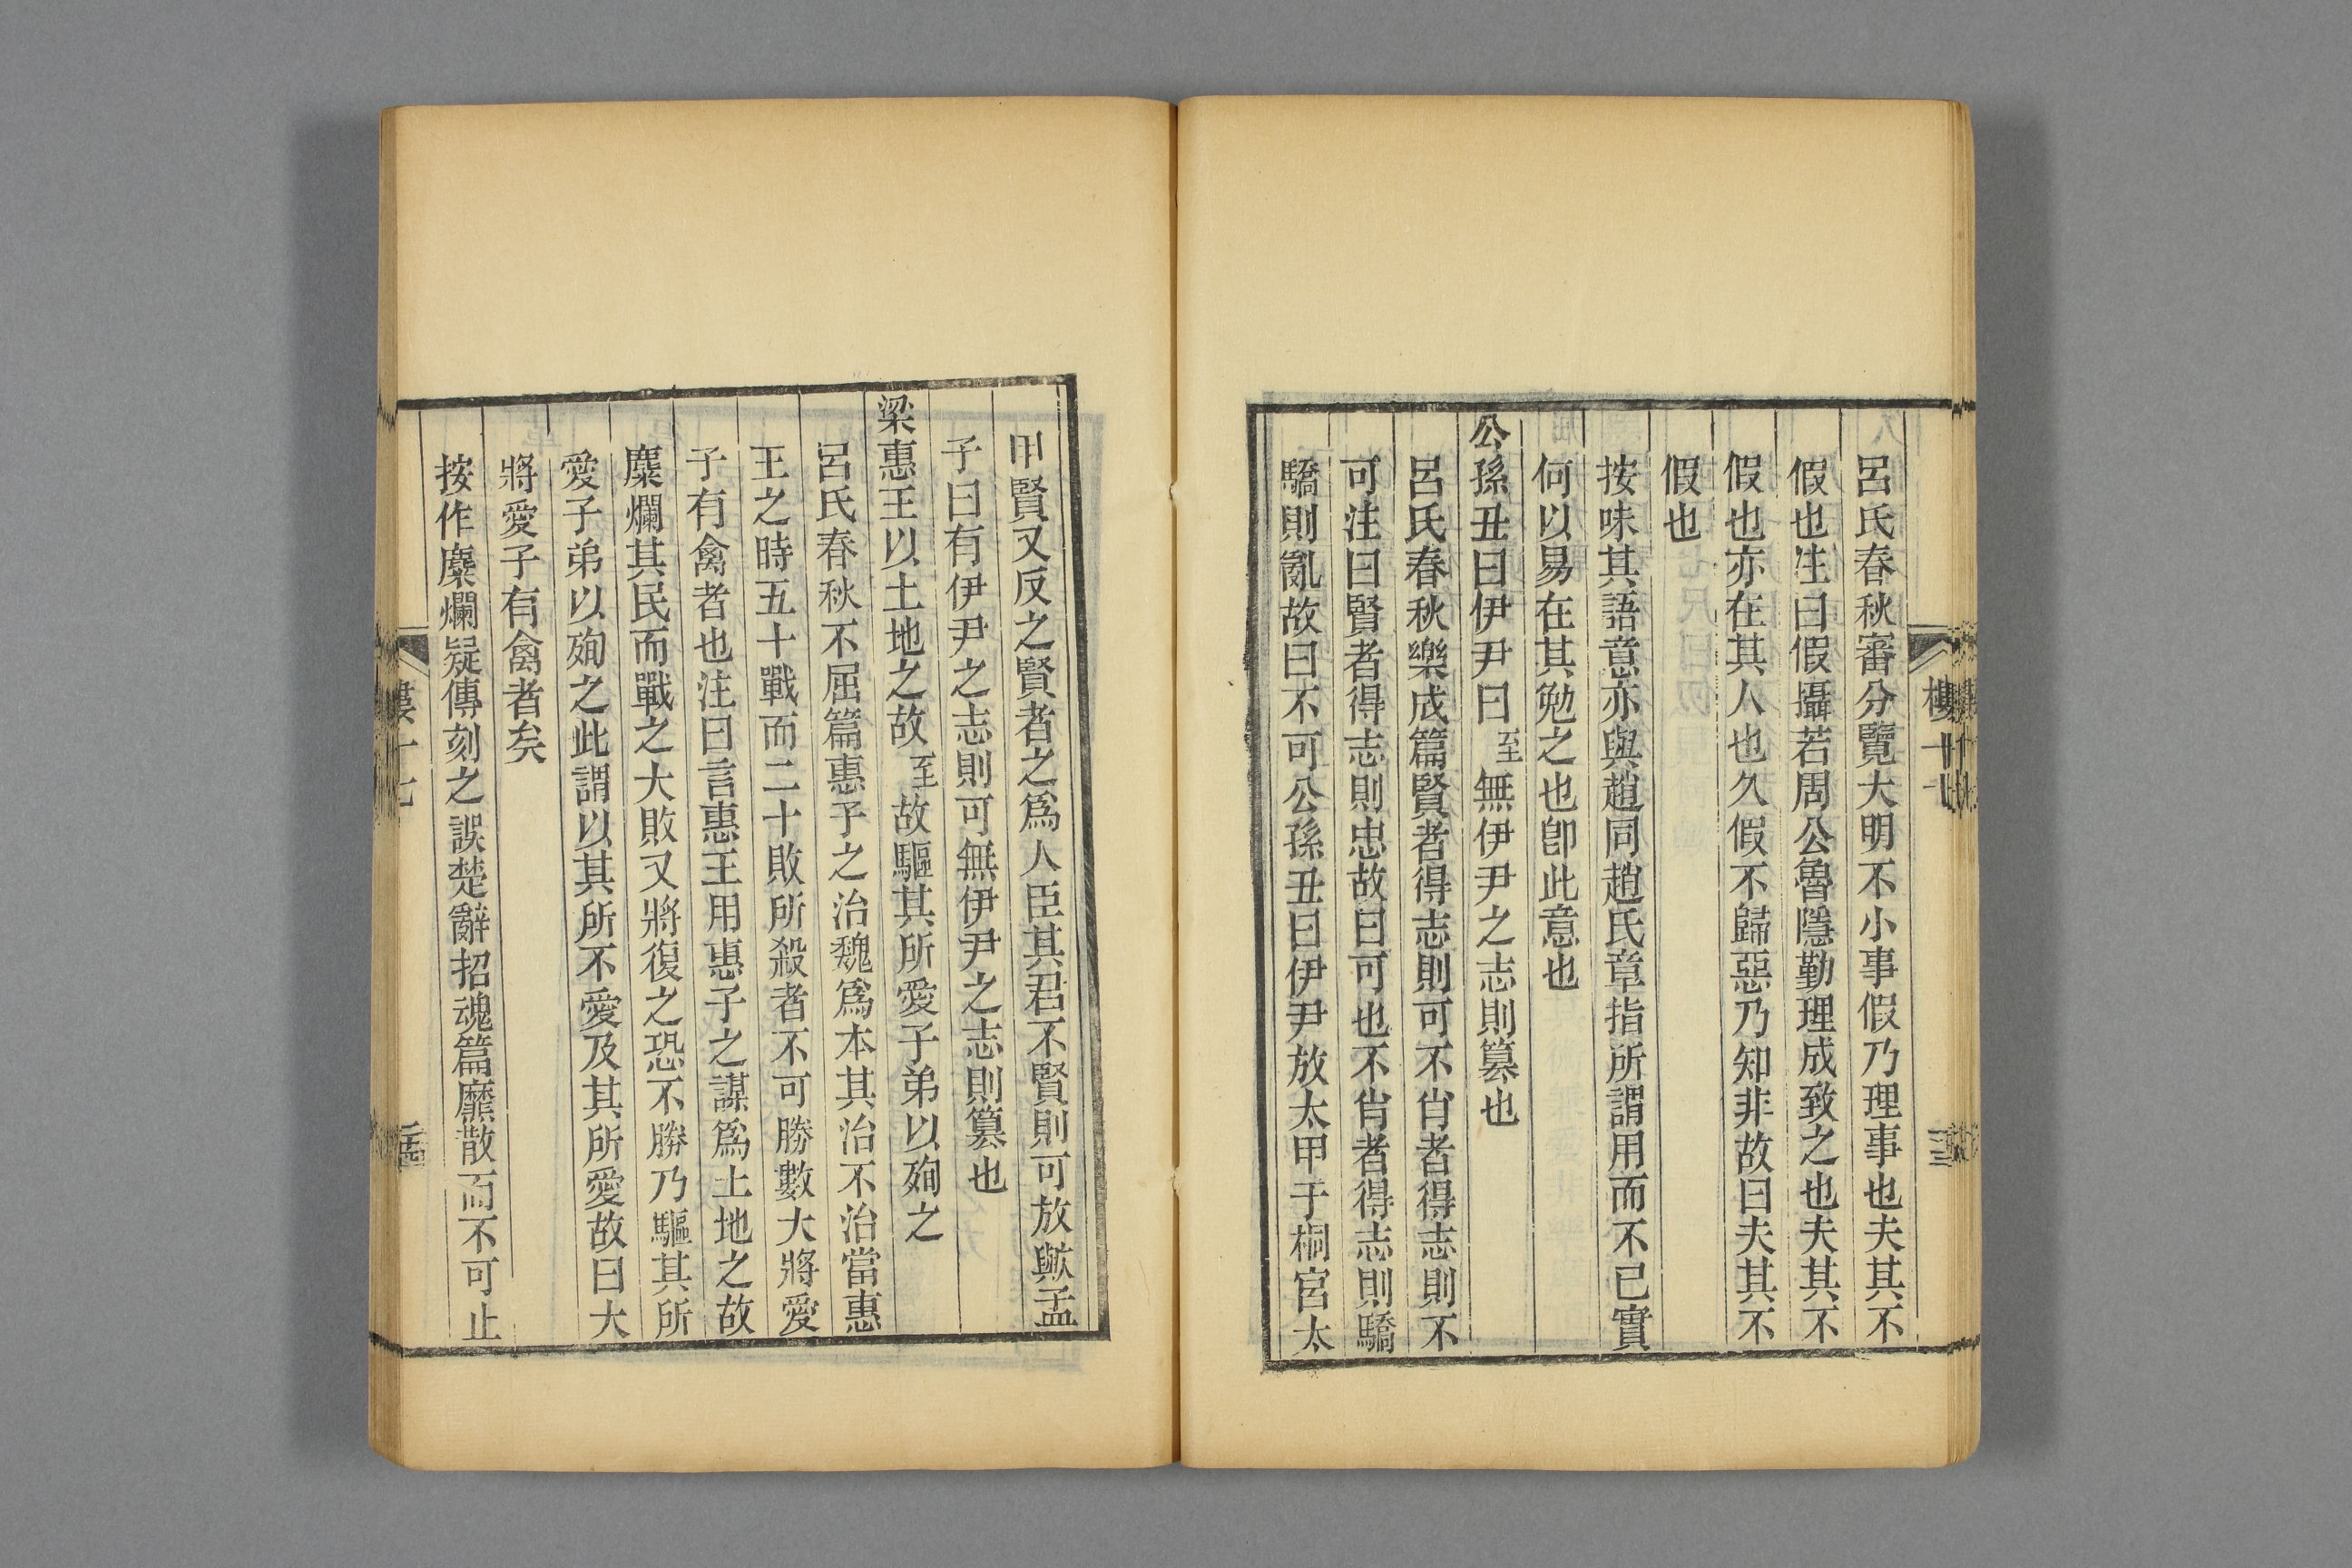 呂氏春秋審分覽大明不小事假乃理事也夫其不
假也注曰假攝若周公魯隱勤理成致之也夫其不
假也亦在其人也久假不歸惡乃知非故曰夫其不
假也
按味其語意亦與趙同趙氏章指所謂用而不已實
何以易在其勉之也卽此意也
公孫丑曰伊尹曰至無伊尹之志則篡也
呂氏春秋樂成篇賢者得志則可不肖者得志則不
可注曰賢者得志則忠故曰可也不肖者得志則驕
驕則亂故曰不可公孫丑曰伊尹放太甲于桐宮太
甲賢又反之賢者之爲人臣其君不賢則可放歟孟
子曰有伊尹之志則可無伊尹之志則篡也
梁惠王以土地之故至故驅其所愛子弟以殉之
呂氏春秋不屈篇惠子之治魏爲本其治不治當惠
王之時五十戰而二十敗所殺者不可勝數大將愛
子有禽者也注曰言惠王用惠子之謀爲土地之故
麋爛其民而戰之大敗又將復之恐不勝乃驅其所
愛子弟以殉之此謂以其所不愛及其所愛故曰大
將愛子有禽者矣
按作麋爛疑傳刻之誤楚辭招魂篇靡散而不可止